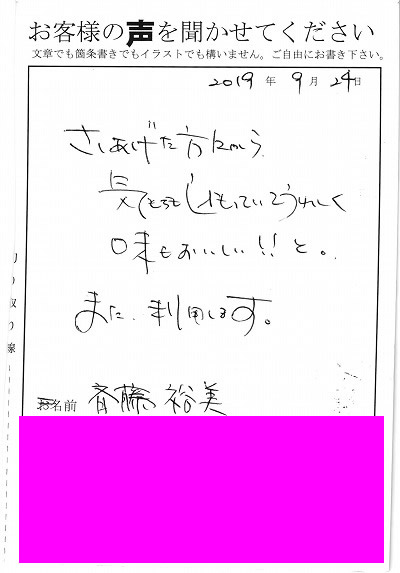 お客様の声を聞かせてください
文章でも箇条書きでもイラストでも構いません。ご自由にお書き下さい。
2019年 9月 24日
さしあげた方から
気もちもこもっていてうれしく
味もおいしい!!と。
また、利用します。
お名前 斉藤 裕美
切り取り線